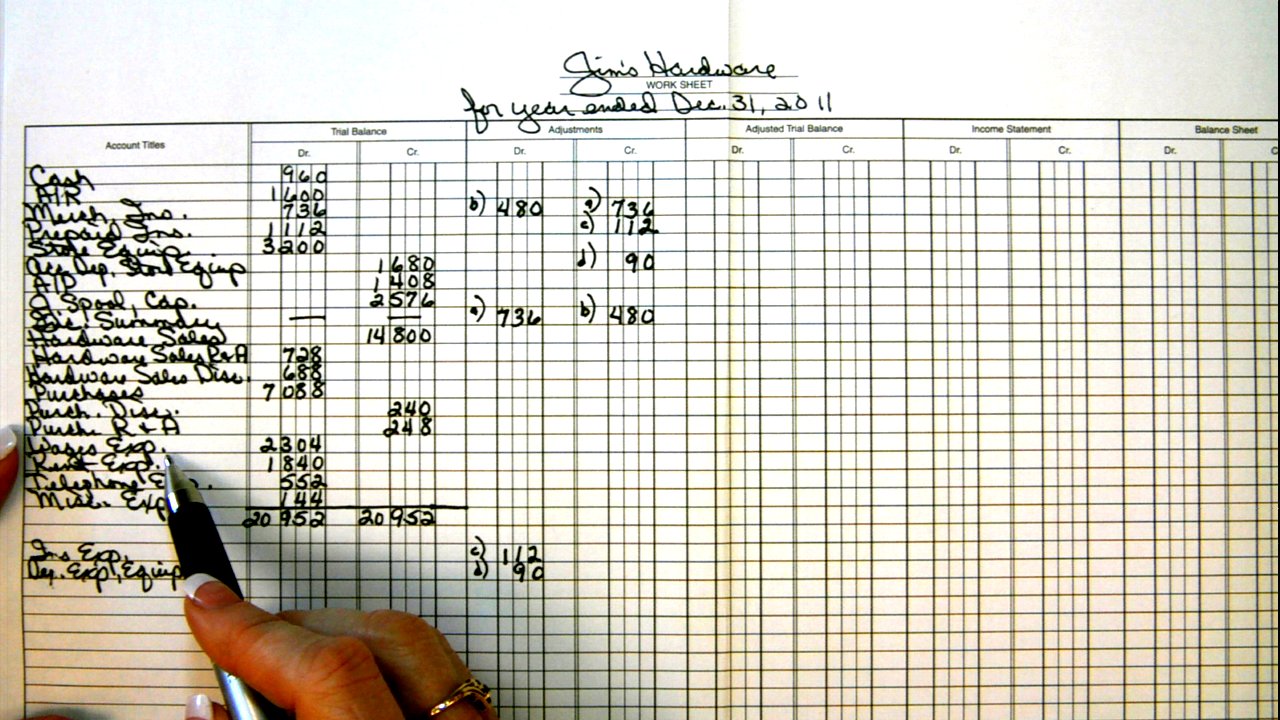 Jim's Hardware
WORK SHEET
for year ended Dec. 31, 2011
Account Titles Trial Balance Adjustments Adjusted Trial Balance Income Statement Balance Sheet
Dr. Cr. Dr. Cr. Dr. Cr. Dr. Cr. Dr. C
Cash 960
A/R 1600
Merch. Inv. 736 b) 480 a) 736
Prepaid Ins. 1112 c) 112
Store Equip. 3200
Acc. Dep. Store Equip 1680 d) 90
A/P 1408
J. Spool, Cap. 2576
Inc. Summary — — a) 736 b) 480
Hardware Sales 14800
Hardware Sales R+A 728
Hardware Sales Disc. 688
Purchases 7088
Purch. Disc. 240
Purch. R + A 248
Wages Exp. 2304
Rent Exp. 1840
Telephone Exp. 552
Misc. Exp 144
20952 20952
Ins Exp. c) 112
Dep. Exp, Equip d) 90